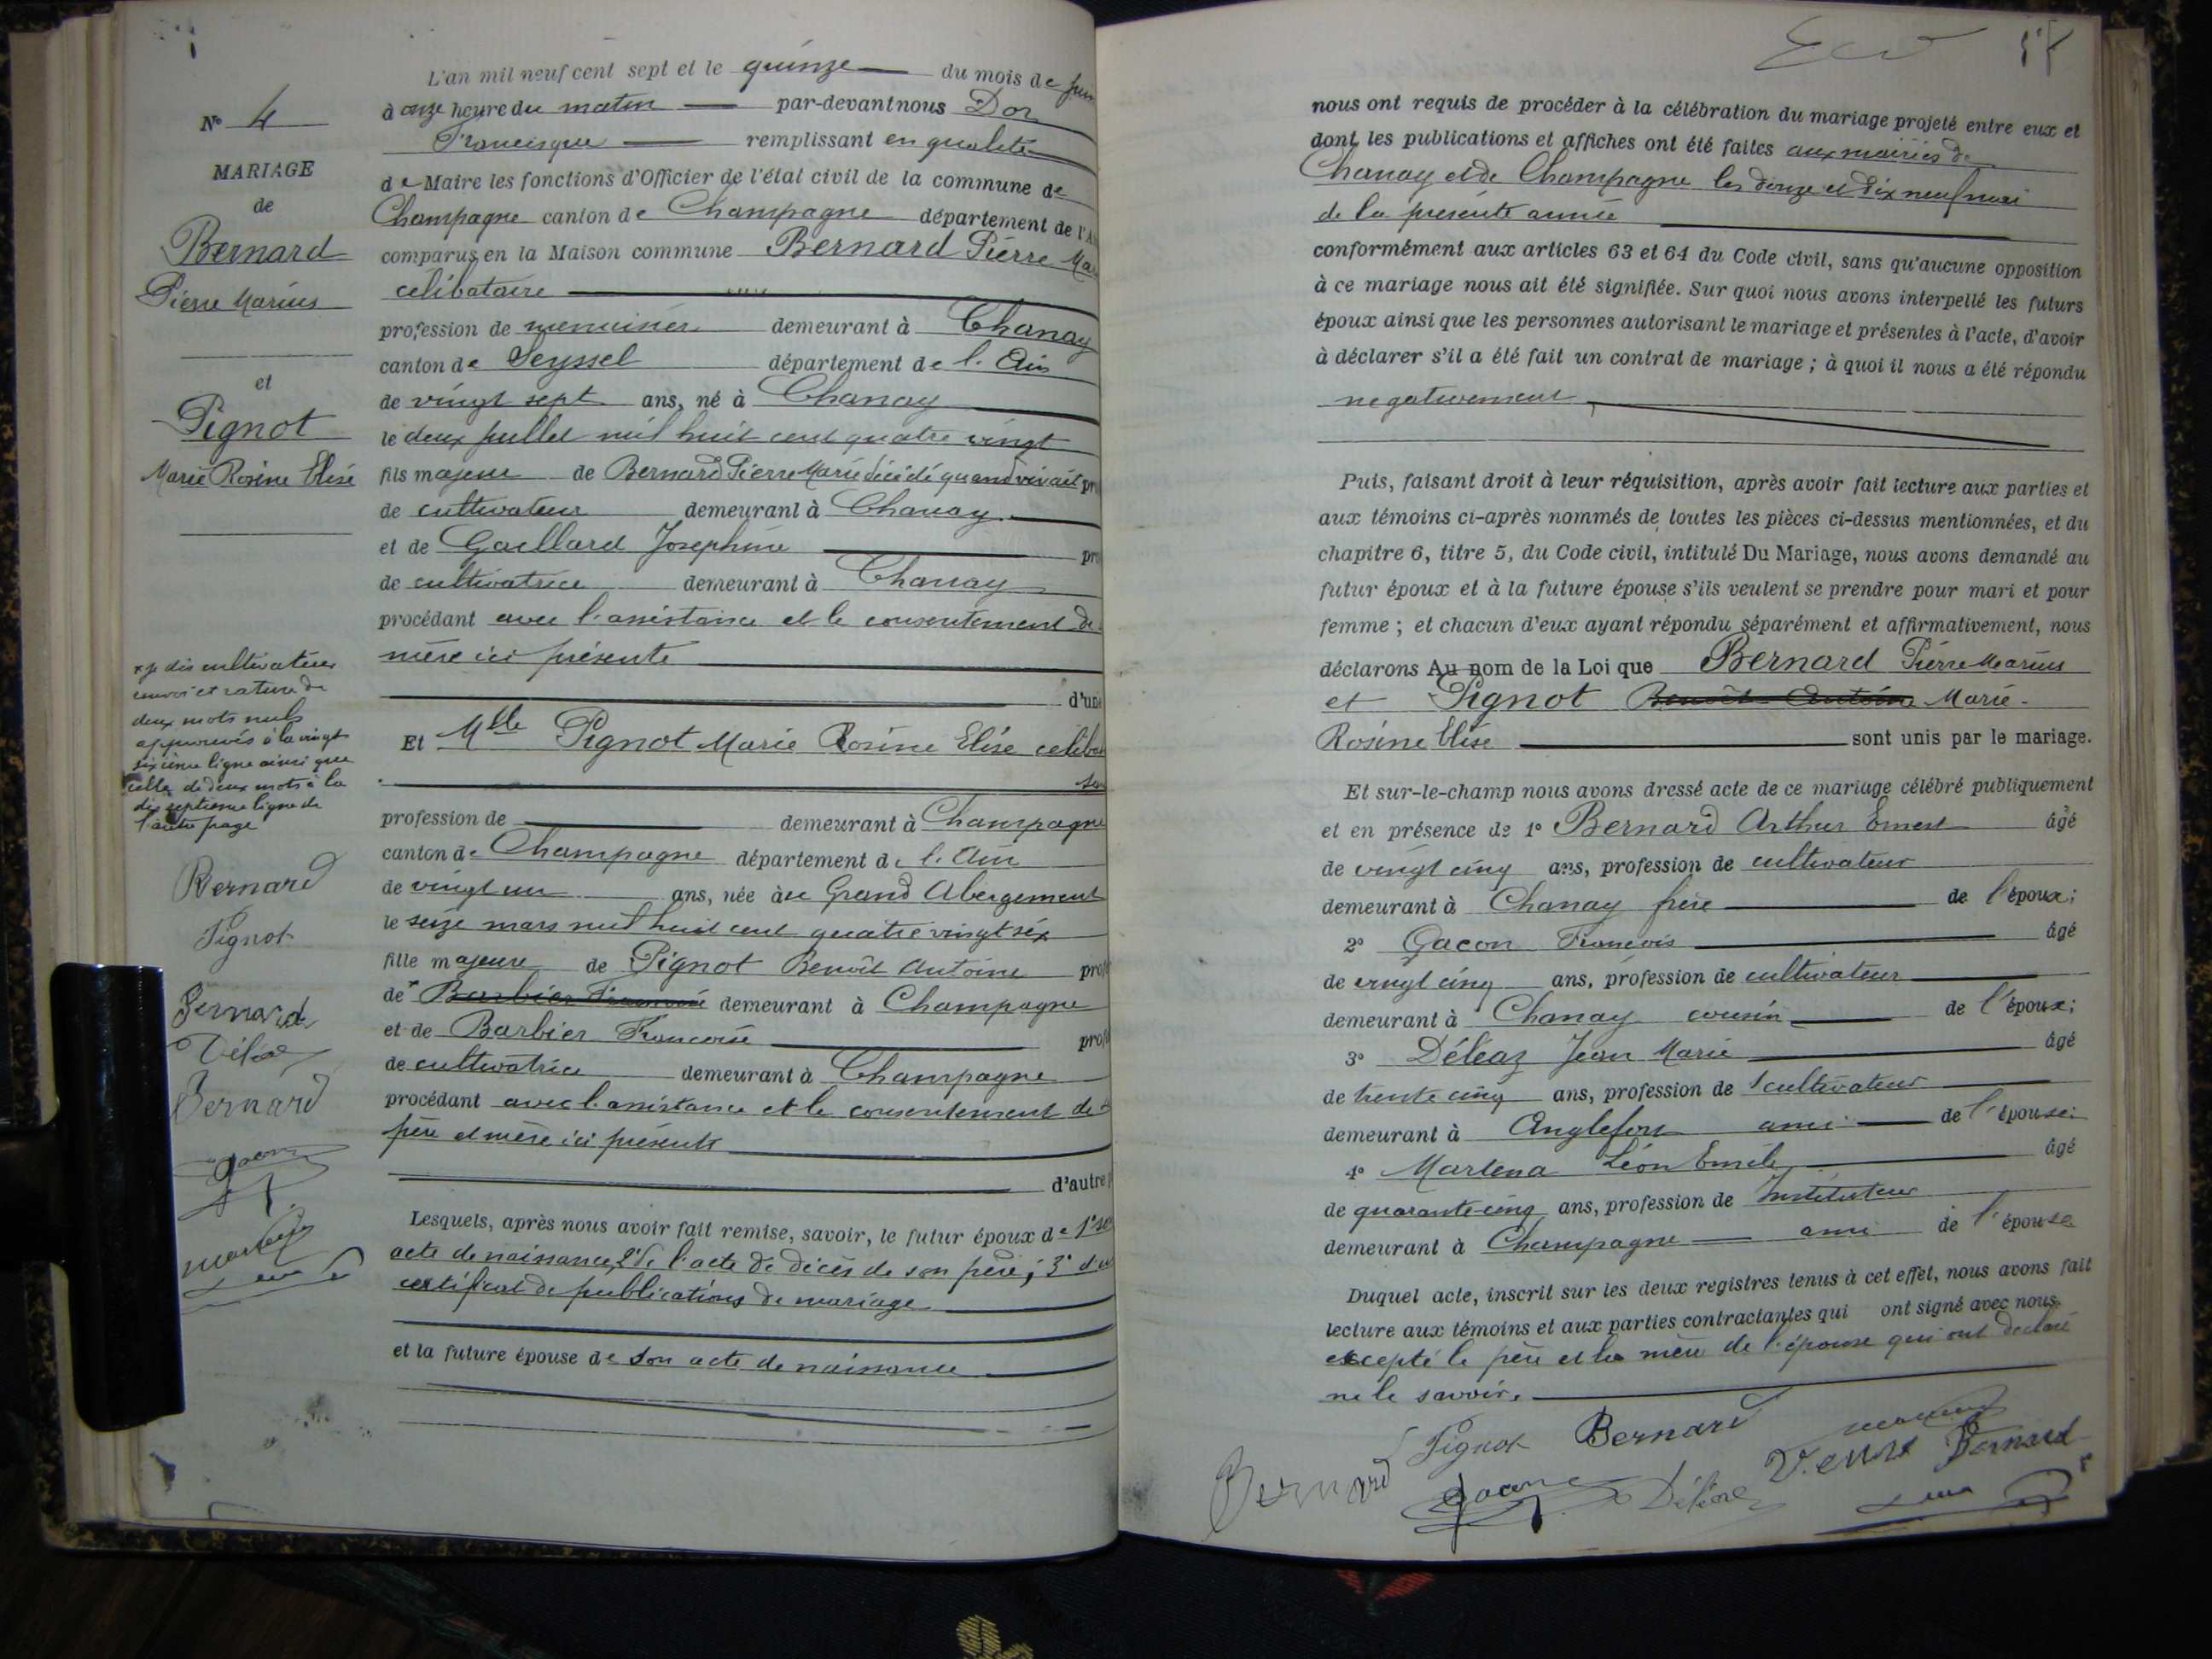 N° 4
MARIAGE
de
Bernard
Pierre Marius
et
Pignot
Marie Rosine Elise
x je dis cultivateur
renvoi et rature de
deux mots nuls
approuvés à la vingt
sixième ligne ainsi que
celle de deux mots à la
dix septieme ligne de
l'autre page
Bernard
Pignot
Bernard
Déléaz
Bernard
Gacon
L'an mil neuf cent sept et le quinze du mois de juin
à onze heure du matin par-devant nous Dor
Francisque remplissant en qualité
de Maire les fonctions d'Officier de l'état civil de la commune de
Champagne canton de Champagne département de l'A
comparus en la Maison commune Bernard Pierre Mar
célibataire
profession de menuisier demeurant à Chanay
canton de Seyssel département de l'Ain
de vingt sept ans, né à Chanay
le deux juillet mil huit cent quatre vingt
fils majeur de Bernard Pierre Marie décédé quand vivait pr
de cultivateur demeurant à Chanay
et de Gaillard Josephine pro
de cultivatrice demeurant à Chanay
procédant avec l'assistance et le consentement de
mère ici présente
d'une
Et Mlle Pignot Marie Rosine Elise céliba
profession de demeurant à Champagne
canton de Champagne département de l'Ain
de vingt un ans, née au Grand Abergement
le seize mars mil huit cent quatre vingt six
fille majeure de Pignot Benoît Antoine prof
de x Barbier Francoise demeurant à Champagne
et de Barbier Francoise prof
de cultivatrice demeurant à Champagne
procédant avec l'assistance et le consentement de
père et mère ici présents
d'autre
Lesquels, après nous avoir fait remise, savoir, le futur époux de 1° son
acte de naissance, 2° de l'acte de décès de son père; 3° d'un
certificat de publications de mariage
et la future épouse de son acte de naissance
nous ont requis de procéder à la célébration du mariage projeté entre eux et
dont les publications et affiches ont été faites aux mairies de
Chanay et de Champagne les douze et dix neuf mai
de la présente année
conformément aux articles 63 et 64 du Code civil, sans qu'aucune opposition
à ce mariage nous ait été signifiée. Sur quoi nous avons interpellé les futurs
époux ainsi que les personnes autorisant le mariage et présentes à l'acte, d'avoir
à déclarer s'il a été fait un contrat de mariage; à quoi il nous a été répondu
negativement
Puis, faisant droit à leur réquisition, après avoir fait lecture aux parties et
aux témoins ci-après nommés de toutes les pièces ci-dessus mentionnées, et du
chapitre 6, titre 5, du Code civil, intitulé Du Mariage, nous avons demandé au
futur époux et à la future épouse s'ils veulent se prendre pour mari et pour
femme; et chacun d'eux ayant répondu séparément et affirmativement, nous
déclarons Au nom de la Loi que Bernard Pierre Marius
et Pignot Benoît Antoine Marie
Rosine Elise sont unis par le mariage.
Et sur-le-champ nous avons dressé acte de ce mariage célébré publiquement
et en présence de 1° Bernard Arthur Ernest âgé
de vingt cinq ans, profession de cultivateur
demeurant à Chanay frère de l'époux;
2° Gacon Francois âgé
de vingt cinq ans, profession de cultivateur
demeurant à Chanay cousin de l'époux;
3° Déléaz Jean Marie âgé
de trente cinq ans, profession de cultivateur
demeurant à Anglefort ami de l'épouse;
4° Martena Léon Emile âgé
de quarante-cinq ans, profession de Instituteur
demeurant à Champagne ami de l'épouse
Duquel acte, inscrit sur les deux registres tenus à cet effet, nous avons fait
lecture aux témoins et aux parties contractantes qui ont signé avec nous
excepté le père et la mère de l'épouse qui ont déclaré
ne le savoir.
Pignot Bernard
Bernard Gacon Déléaz Bernard